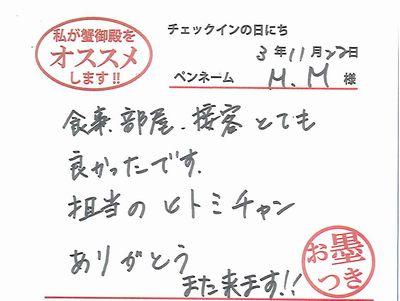 私が蟹御殿を
オススメ
します!!
チェックインの日にち
3年11月22日
ペンネーム M.M 様
食事、部屋、接客とても
良かったです.
担当のヒトミチャン
ありがとう
また来ます!!
お墨
つき